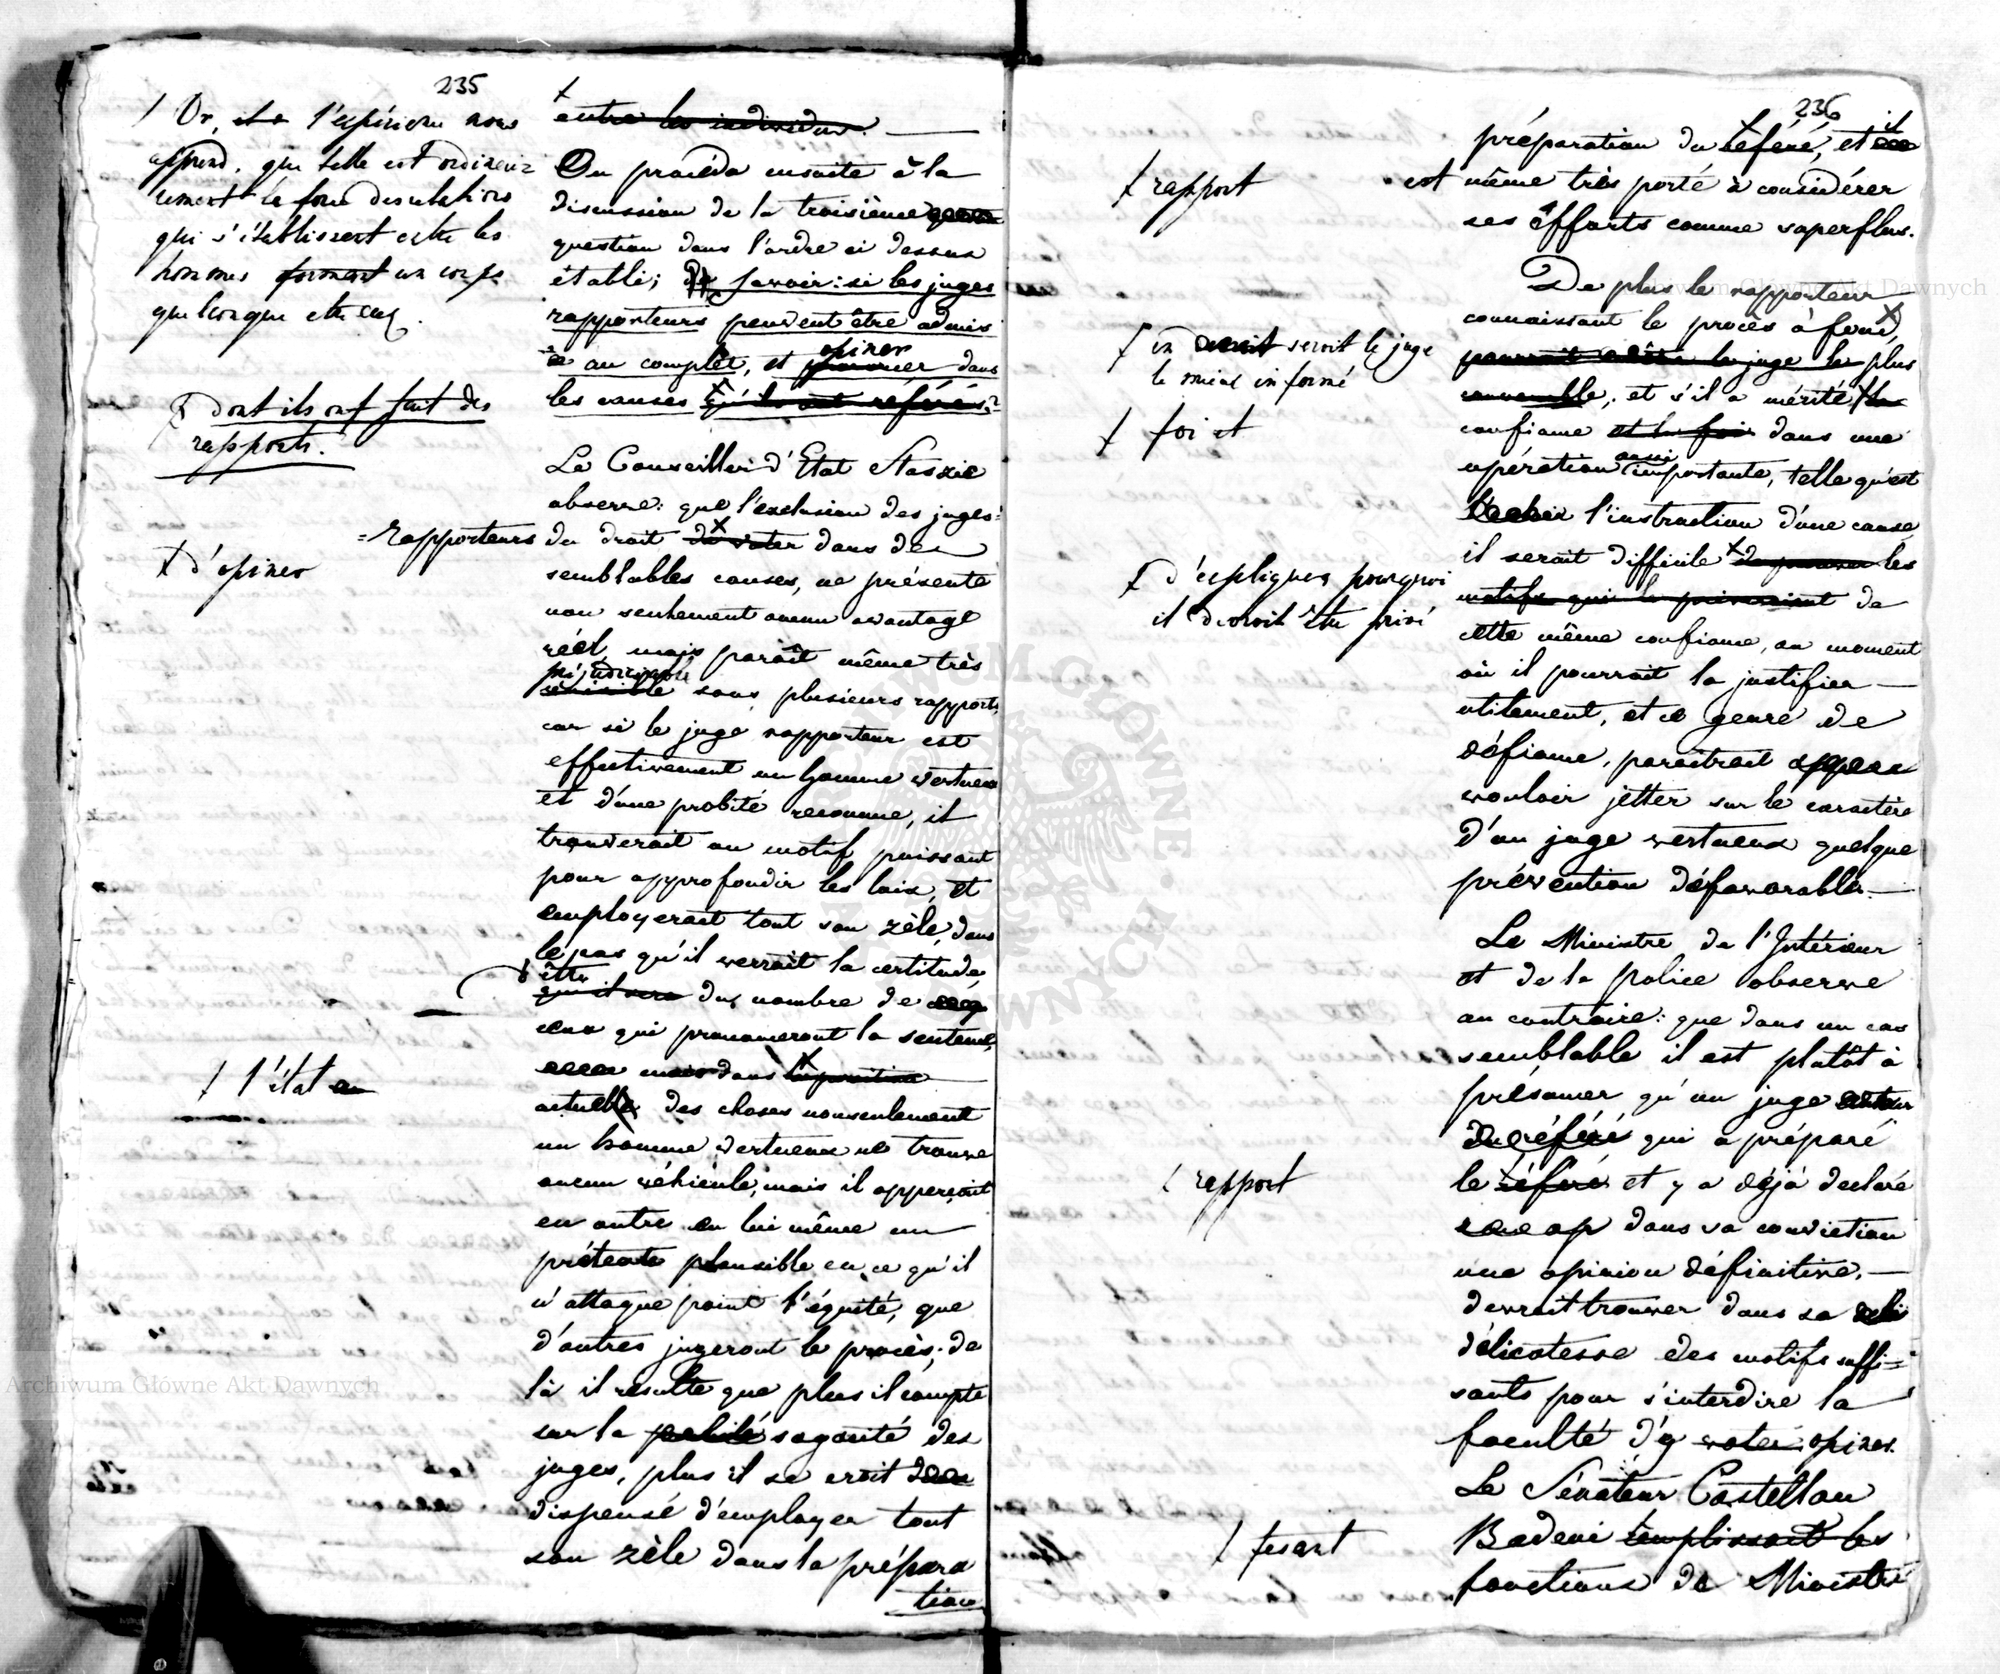 235
/ Or, l'expérience nous
apprend, que telle est ordinai=
rement le fond des relations
qui s'établissent entre les
hommes formant un corps
quelconque entr'eux.
entre les individus.
On procéda ensuite à la
discussion de la troisième
question dans l'ordre ci dessus
établi; savoir: si les juges
rapporteurs peuvent être admis
au complêt, et opiner dans
les causes qu'ils ont référés?
dont ils ont fait des
rapports.
Le Conseiller d'Etat Staszic
observe: que l'exclusion des juges=
=rapporteurs du droit de voter dans de
d'opiner
semblables causes, ne présente
non seulement aucun avantage
réél, mais paraît même très
préjudiciable
nuisible sous plusieurs rapports,
car si le juge rapporteur est
effectivement un homme vertueux
et d'une probité reconnue, il
trouverait un motif puissant
pour approfondir les loix, et
employerait tout son zèle, dans
le pas qu'il verrait la certitude
être
qu'il sera du nombre de
ceux qui prononceront la sentence,
mais dans la position
/ l'état
actuelle des choses nonseulement
un homme vertueux ne trouve
aucun véhicule, mais il apperçoit
en outre en lui même un
prétexte plausible en ce qu'il
n'attaque point l'équité, que
d'autres jugeront le procès; de
là il resulte que plus il compte
sur la probité sagacité des
juges, plus il se croit
dispensé d'employer tout
son zèle dans la prépara
tion
236
préparation du référé, et il
rapport
est même très porté à considérer
ses éfforts comme superflus.
De plus le rapporteur
connaissant le procès à fond,
en seroit le juge
le mieux informé
pourrait être le juge le plus
convenable, et s'il a mérité la
foi et
confiance et la foi dans une
opération aussi importante, telle qu'est
l'instruction d'une cause,
il serait difficile de prouver les
d'expliquer pourquoi
il devroit être privé
motifs qui le priveraient de
cette même confiance, au moment
où il pourrait la justifier
utilement, et ce genre de
défiance, paraîtrait
vouloir jetter sur le caractère
d'un juge vertueux quelque
prévention défavorable.
Le Ministre de l'Intérieur
et de la police observe
au contraire: que dans un cas
semblable il est plutôt à
présumer qu'un juge auteur
du référé qui a préparé
le référé et y a déjà declaré
/ rapport
dans sa conviction
une opinion définitive,
devrait trouver dans sa
délicatesse des motifs suffi=
sants pour s'interdire la
faculté d'y voter opiner.
Le Sénateur Castellan
Badeni remplissant les
/ fesant
fonctions de Ministre
Archiwum Główne Akt Dawnych
Archiwum Główne Akt Dawnych